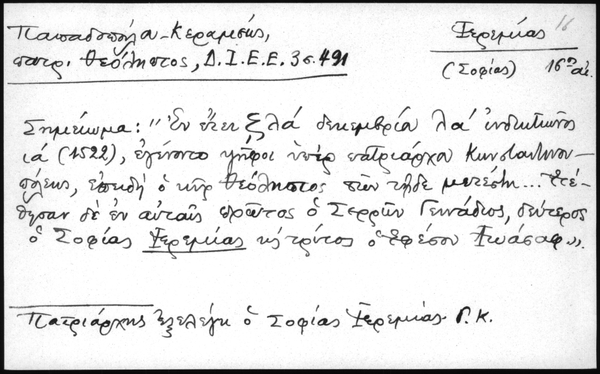 Παπαδοπούλου-Κεραμέως,
πατρ. Θεόληπτος, Δ.Ι.Ε.Ε. 3 σ. 491
Ἱερεμίας 16
(Σοφίας) 16ος αἰ.
Σημείωμα: "Ἐν ἔτει ζλά δεκεμβρία λα' ἰνδικτιῶνος
ιά (1522), ἐγένοντο ψῆφοι ὑπέρ πατριάρχα Κωνσταντινου-
πόλεως, ἐπειδή ὁ κῦρ Θεόληπτος τῶν τῇδε μετέστη... ἐτέ-
θησαν δέ ἐν αὐταῖς πρῶτος ὁ Σερρῶν Γεννάδιος, δεύτερος
ὁ Σοφίας Ἱερεμίας κ τρίτος ὁ Ἐφέσου Ἰωάσαφ".
Πατριάρχης ἐξελέγη ὁ Σοφίας Ἱερεμίας Γ.Κ.